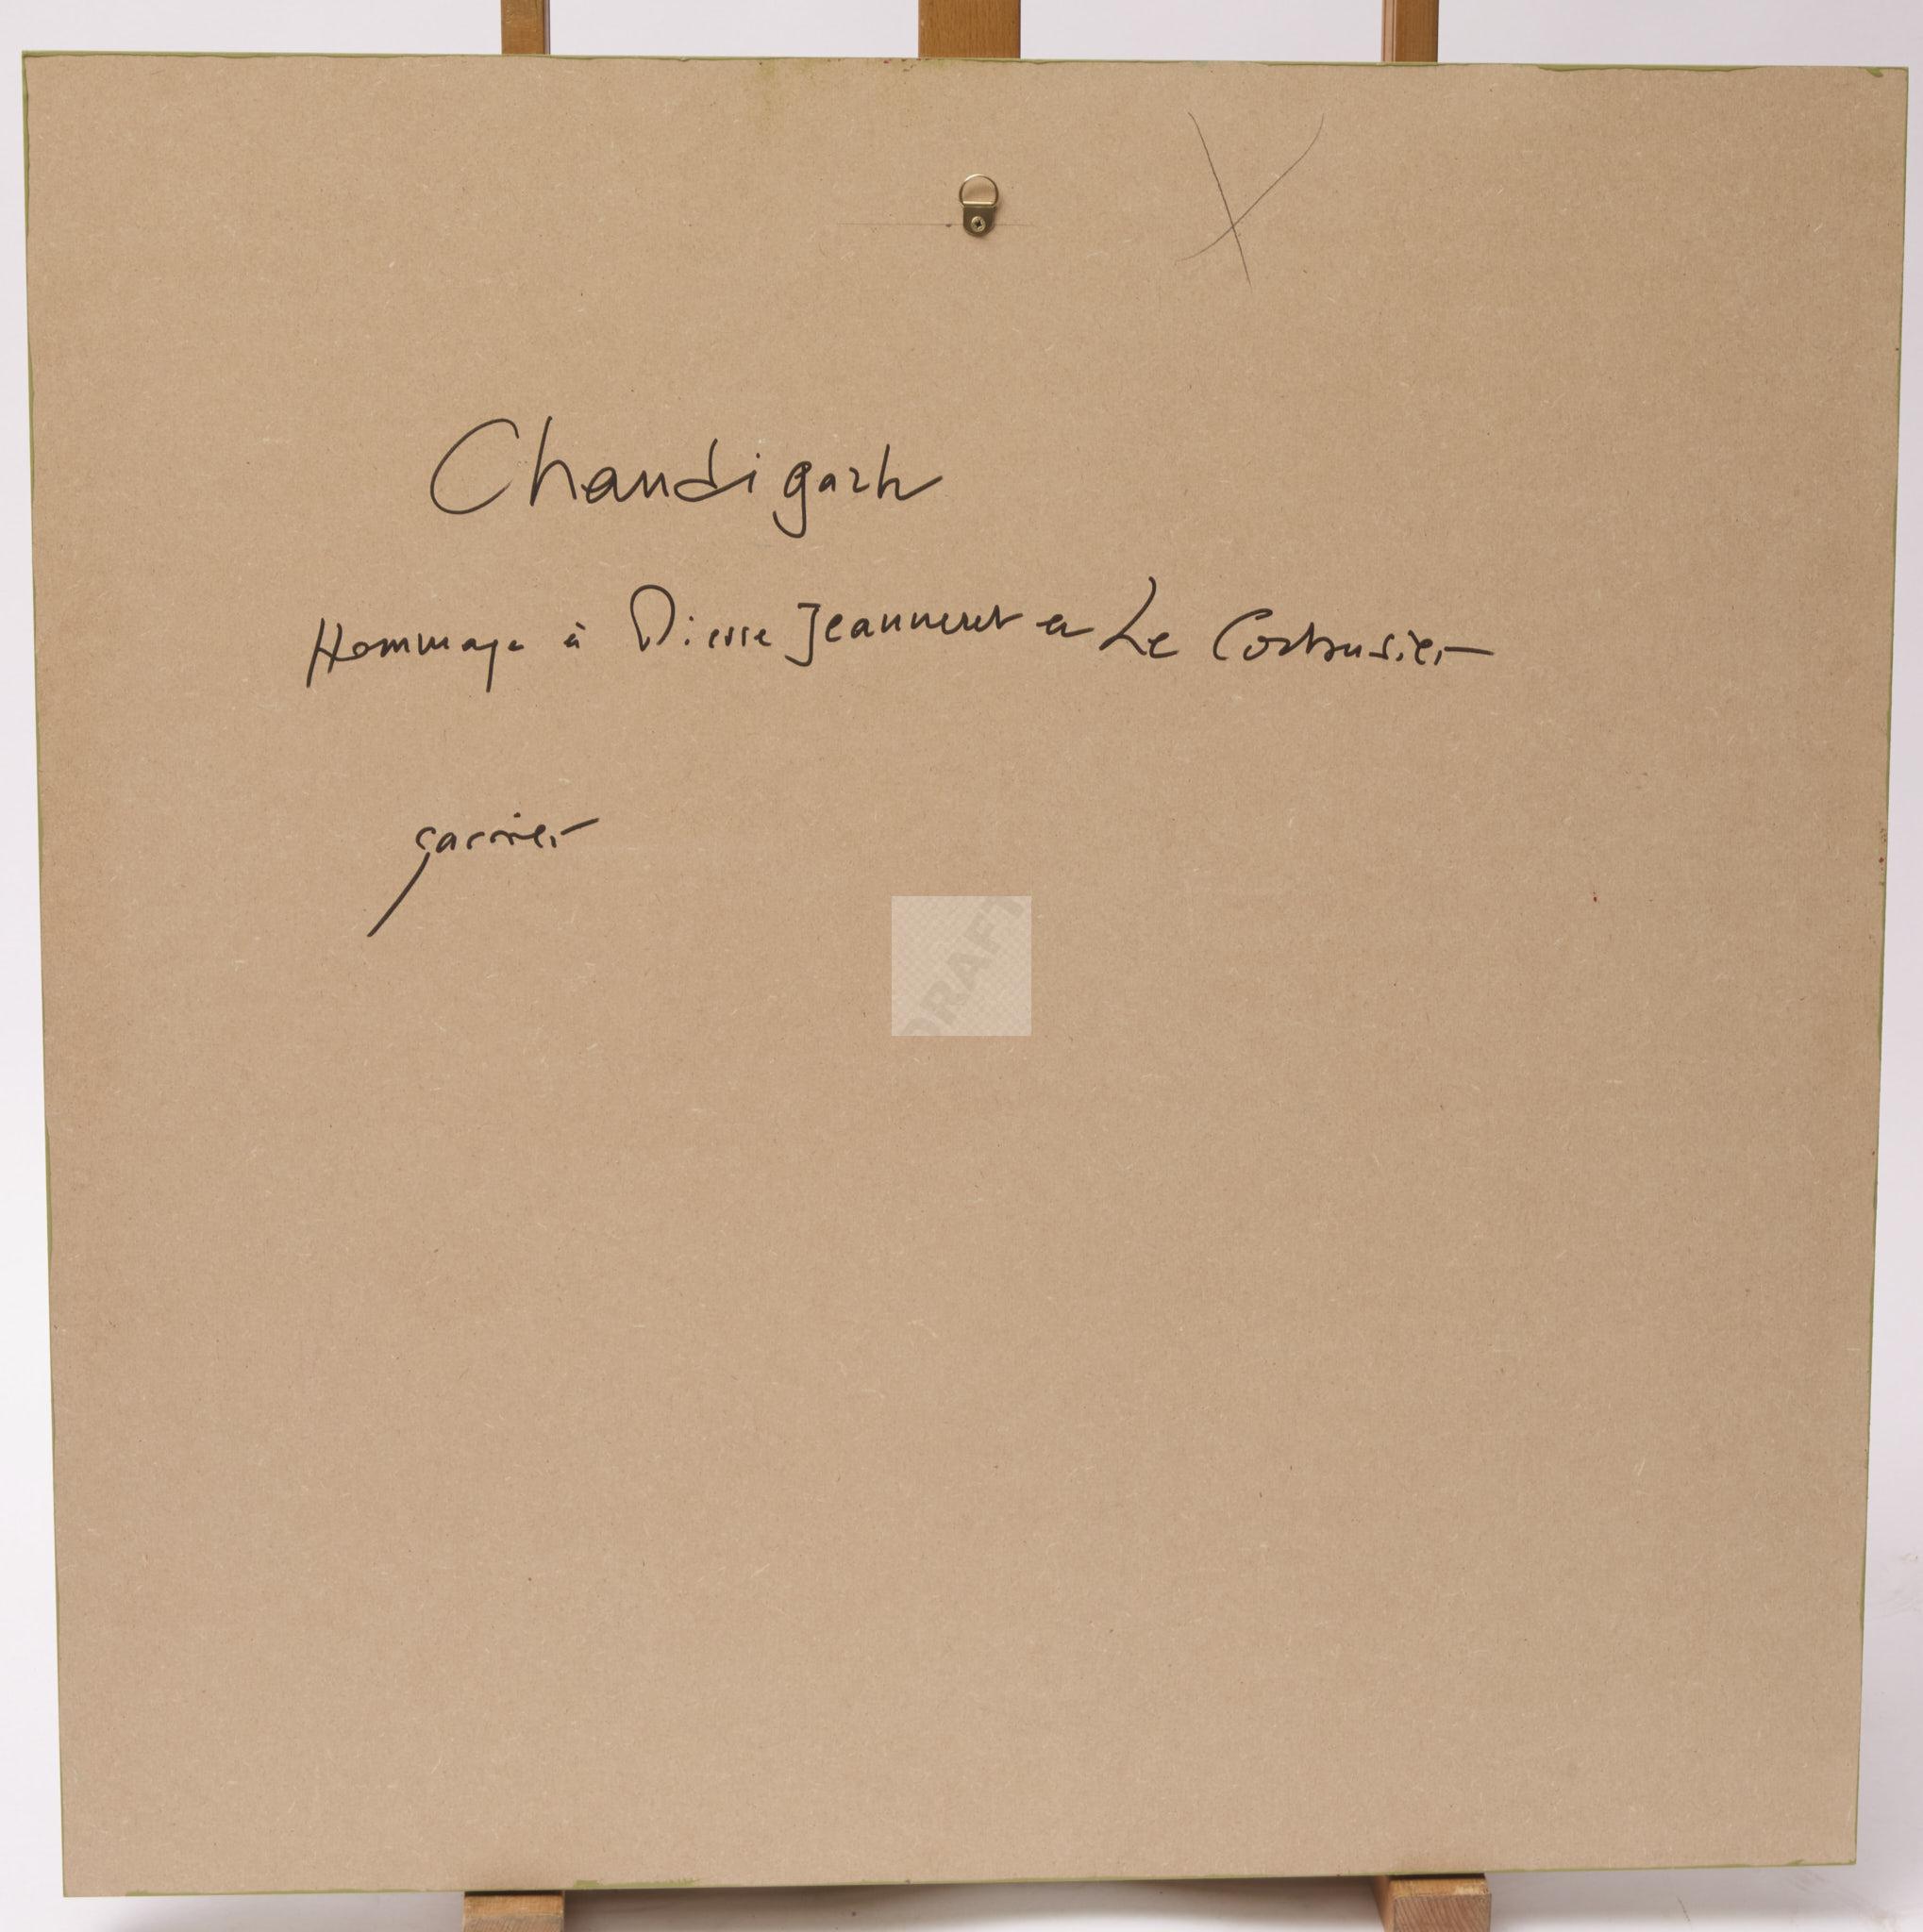 Chandigarh
Hommage à Pierre Jeanneret et Le Corbusier
garnier
DRAFT